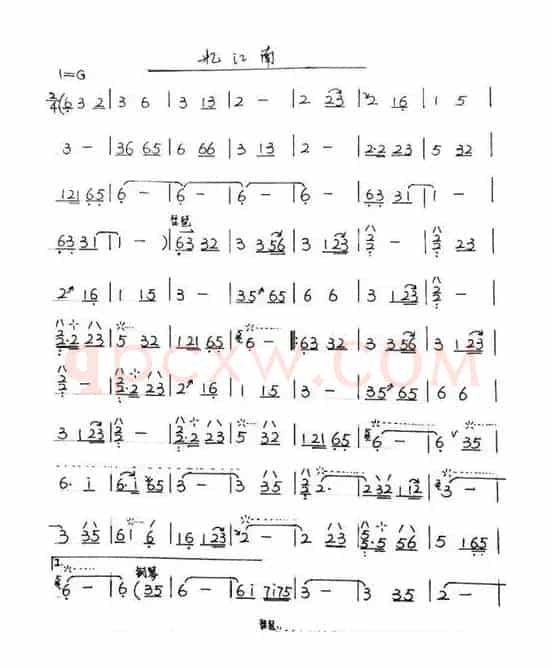 忆江南
1=G
2/4 (6 3 2 | 3 6 | 3 13 | 2 - | 2 23 | 2 16 | 1 5 |
3 - | 36 65 | 6 66 | 3 13 | 2 - | 2·2 23 | 5 32 |
121 65 | 6 - | 6 - | 6 - | 6 - | 63 31 | 1 - |
琵琶
63 31 | 1 - ) | 63 32 | 3 356 | 3 123 | 2/2 - | 2/2 23 |
2 16 | 1 15 | 3 - | 35 65 | 6 6 | 3 123 | 2/2 - |
2·2 23 | 5 32 | 121 65 | 6 - |: 63 32 | 3 356 | 3 123 |
2/2 - | 2·2 23 | 2 16 | 1 15 | 3 - | 35 65 | 6 6 |
3 123 | 2/2 - | 2·2 23 | 5 32 | 121 65 | 6 - | 6 35 |
6· i | 6·i 65 | 3 - | 3 35 | 2· | 232 112 | 3 - |
3 35 | 61 6 | 16 123 | 2 - | 2 35 | 5·5 56 | 5 165 |
2.
钢琴
6 - | 6 (35 | 6 - | 6i 7i75 | 3 - | 3 35 | 2 - |
琵琶
qpcxw.COM